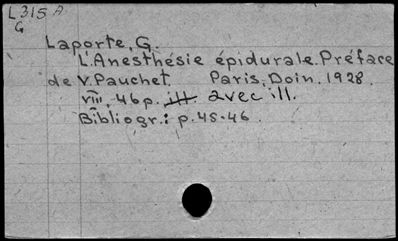 L315 A
G
Laporte, G.
L'Anesthésie épidurale. Préface
de V. Pauchet. Paris, Doin. 1928.
VIII, 46p. ill. avec ill.
Bibliogr.: p. 45-46.